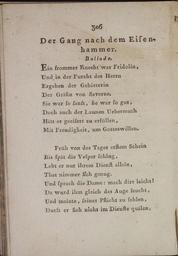 306
Der Gang nach dem Eisen-
hammer.
Ballade.
Ein frommer Knecht war Fridolin,
Und in der Furcht des Herrn
Ergeben der Gebieterin
Der Gräfin von Saverne.
Sie war so sanft, sie war so gut,
Doch auch der Launen Uebermuth
Hätt er geeifert zu erfüllen,
Mit Freudigkeit, um Gotteswillen.
Früh von des Tages erstem Schein
Bis spät die Vesper schlug,
Lebt er nur ihrem Dienst allein,
That nimmer sich genug.
Und sprach die Dame: mach dirs leicht!
Da wurd ihm gleich das Auge feucht,
Und meinte, seiner Pflicht zu fehlen,
Durft er sich nicht im Dienste quälen.